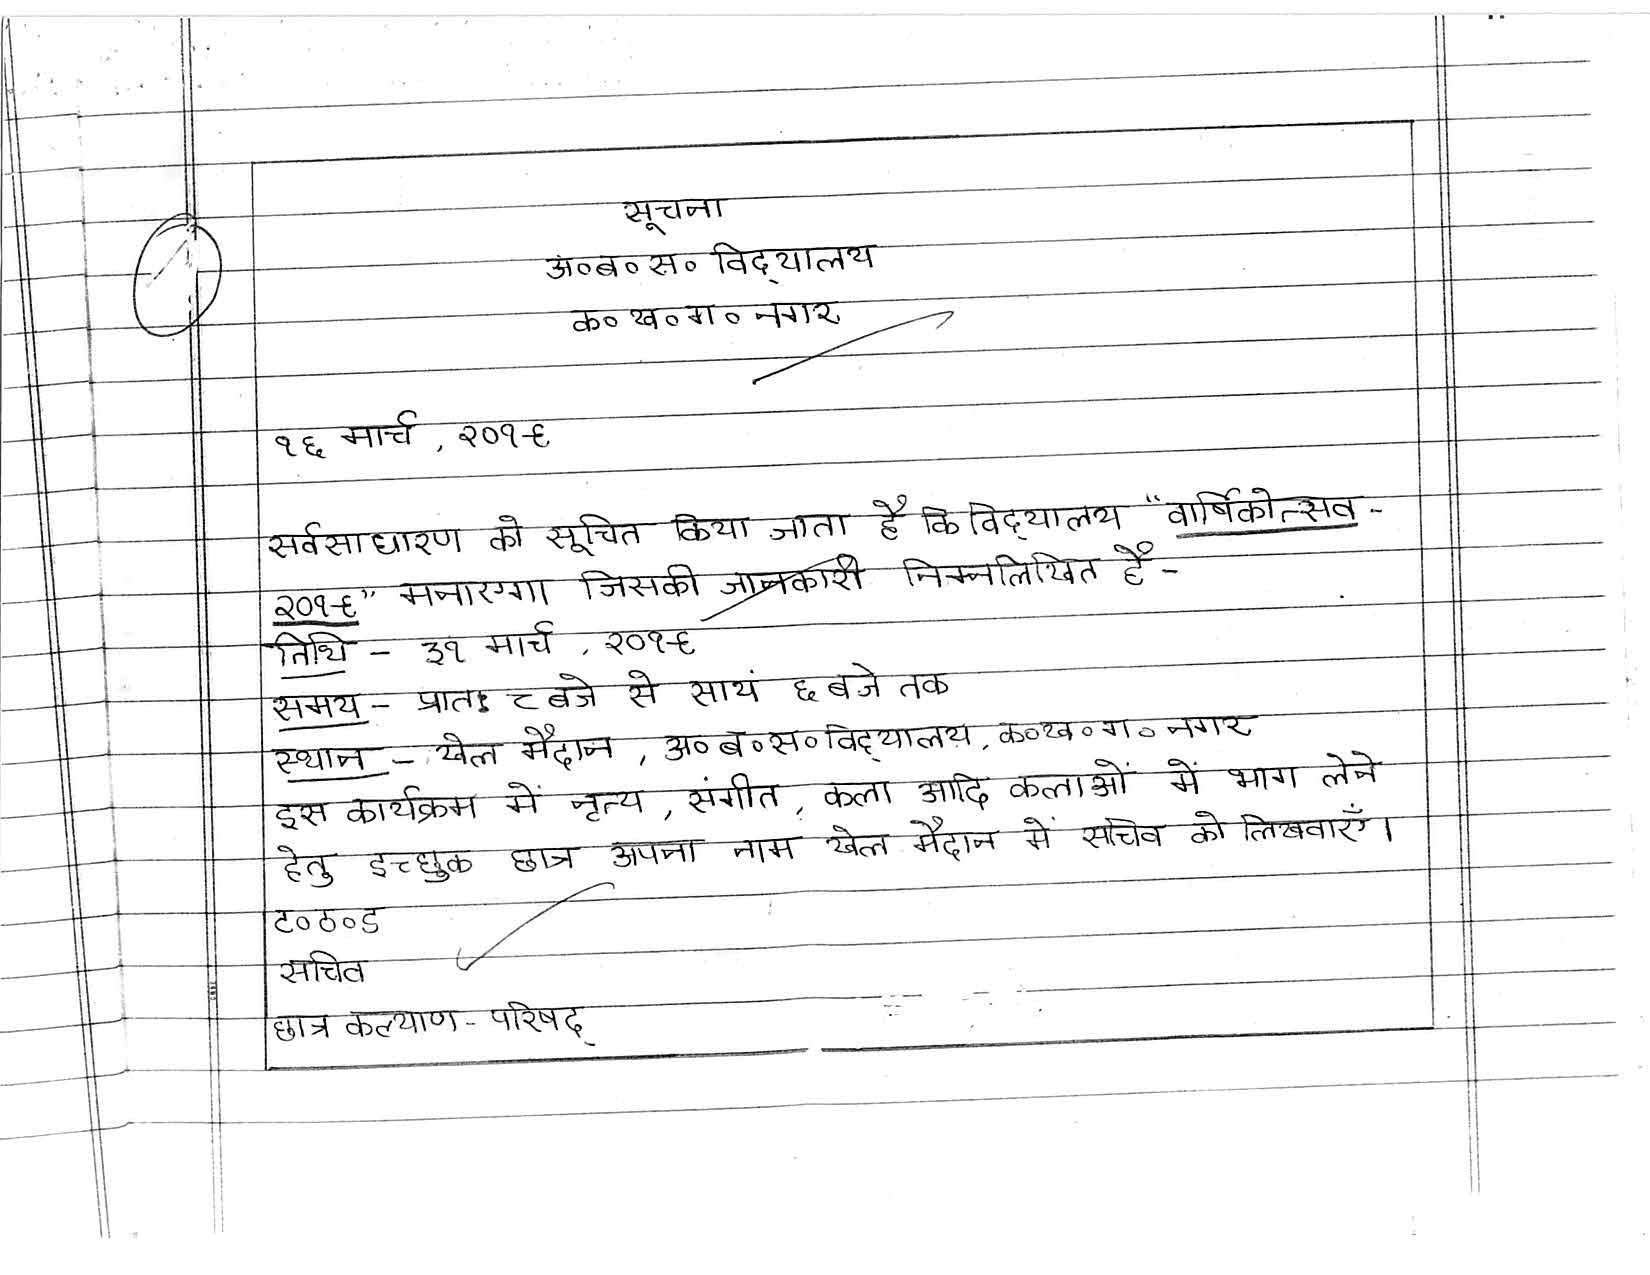 सूचना
अ०ब०स० विद्यालय
क०ख०ग० नगर
१६ मार्च, २०१९
सर्वसाधारण को सूचित किया जाता है कि विद्यालय "वार्षिकोत्सव -
२०१९" मनाएगा जिसकी जानकारी निम्नलिखित है -
तिथि - ३१ मार्च, २०१९
समय - प्रातः ८ बजे से सायं ६ बजे तक
स्थान - खेल मैदान, अ०ब०स० विद्यालय, क०ख०ग० नगर
इस कार्यक्रम में नृत्य, संगीत, कला आदि कलाओं में भाग लेने
हेतु इच्छुक छात्र अपना नाम खेल मैदान में सचिव को लिखवाएँ।
ट०ठ०ड
सचिव
छात्र कल्याण - परिषद्